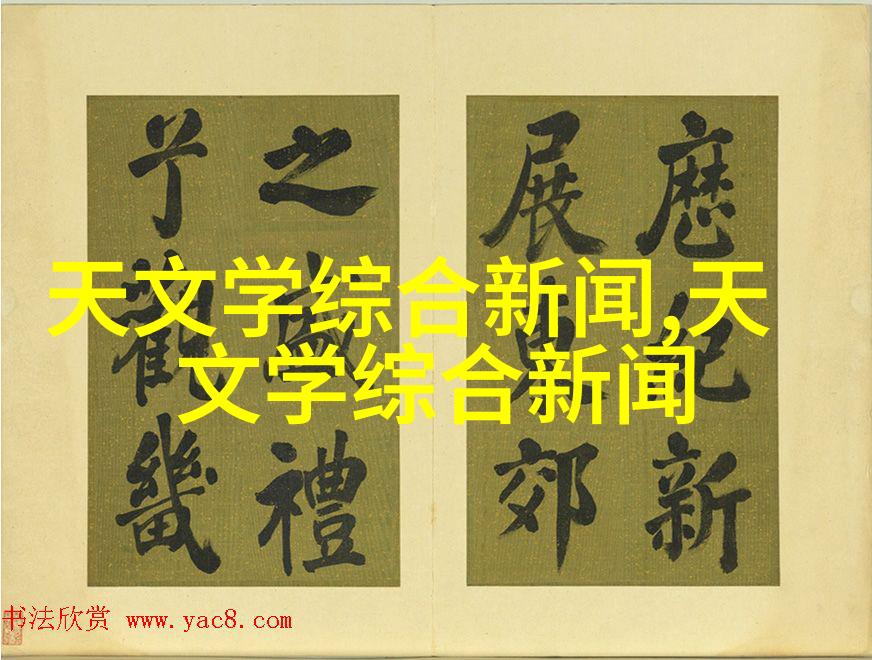 歷紀新
展東郊
之盛禮
觀畿
天文学综合新闻,天
文学综合新闻
书法欣赏 www.yac8.com